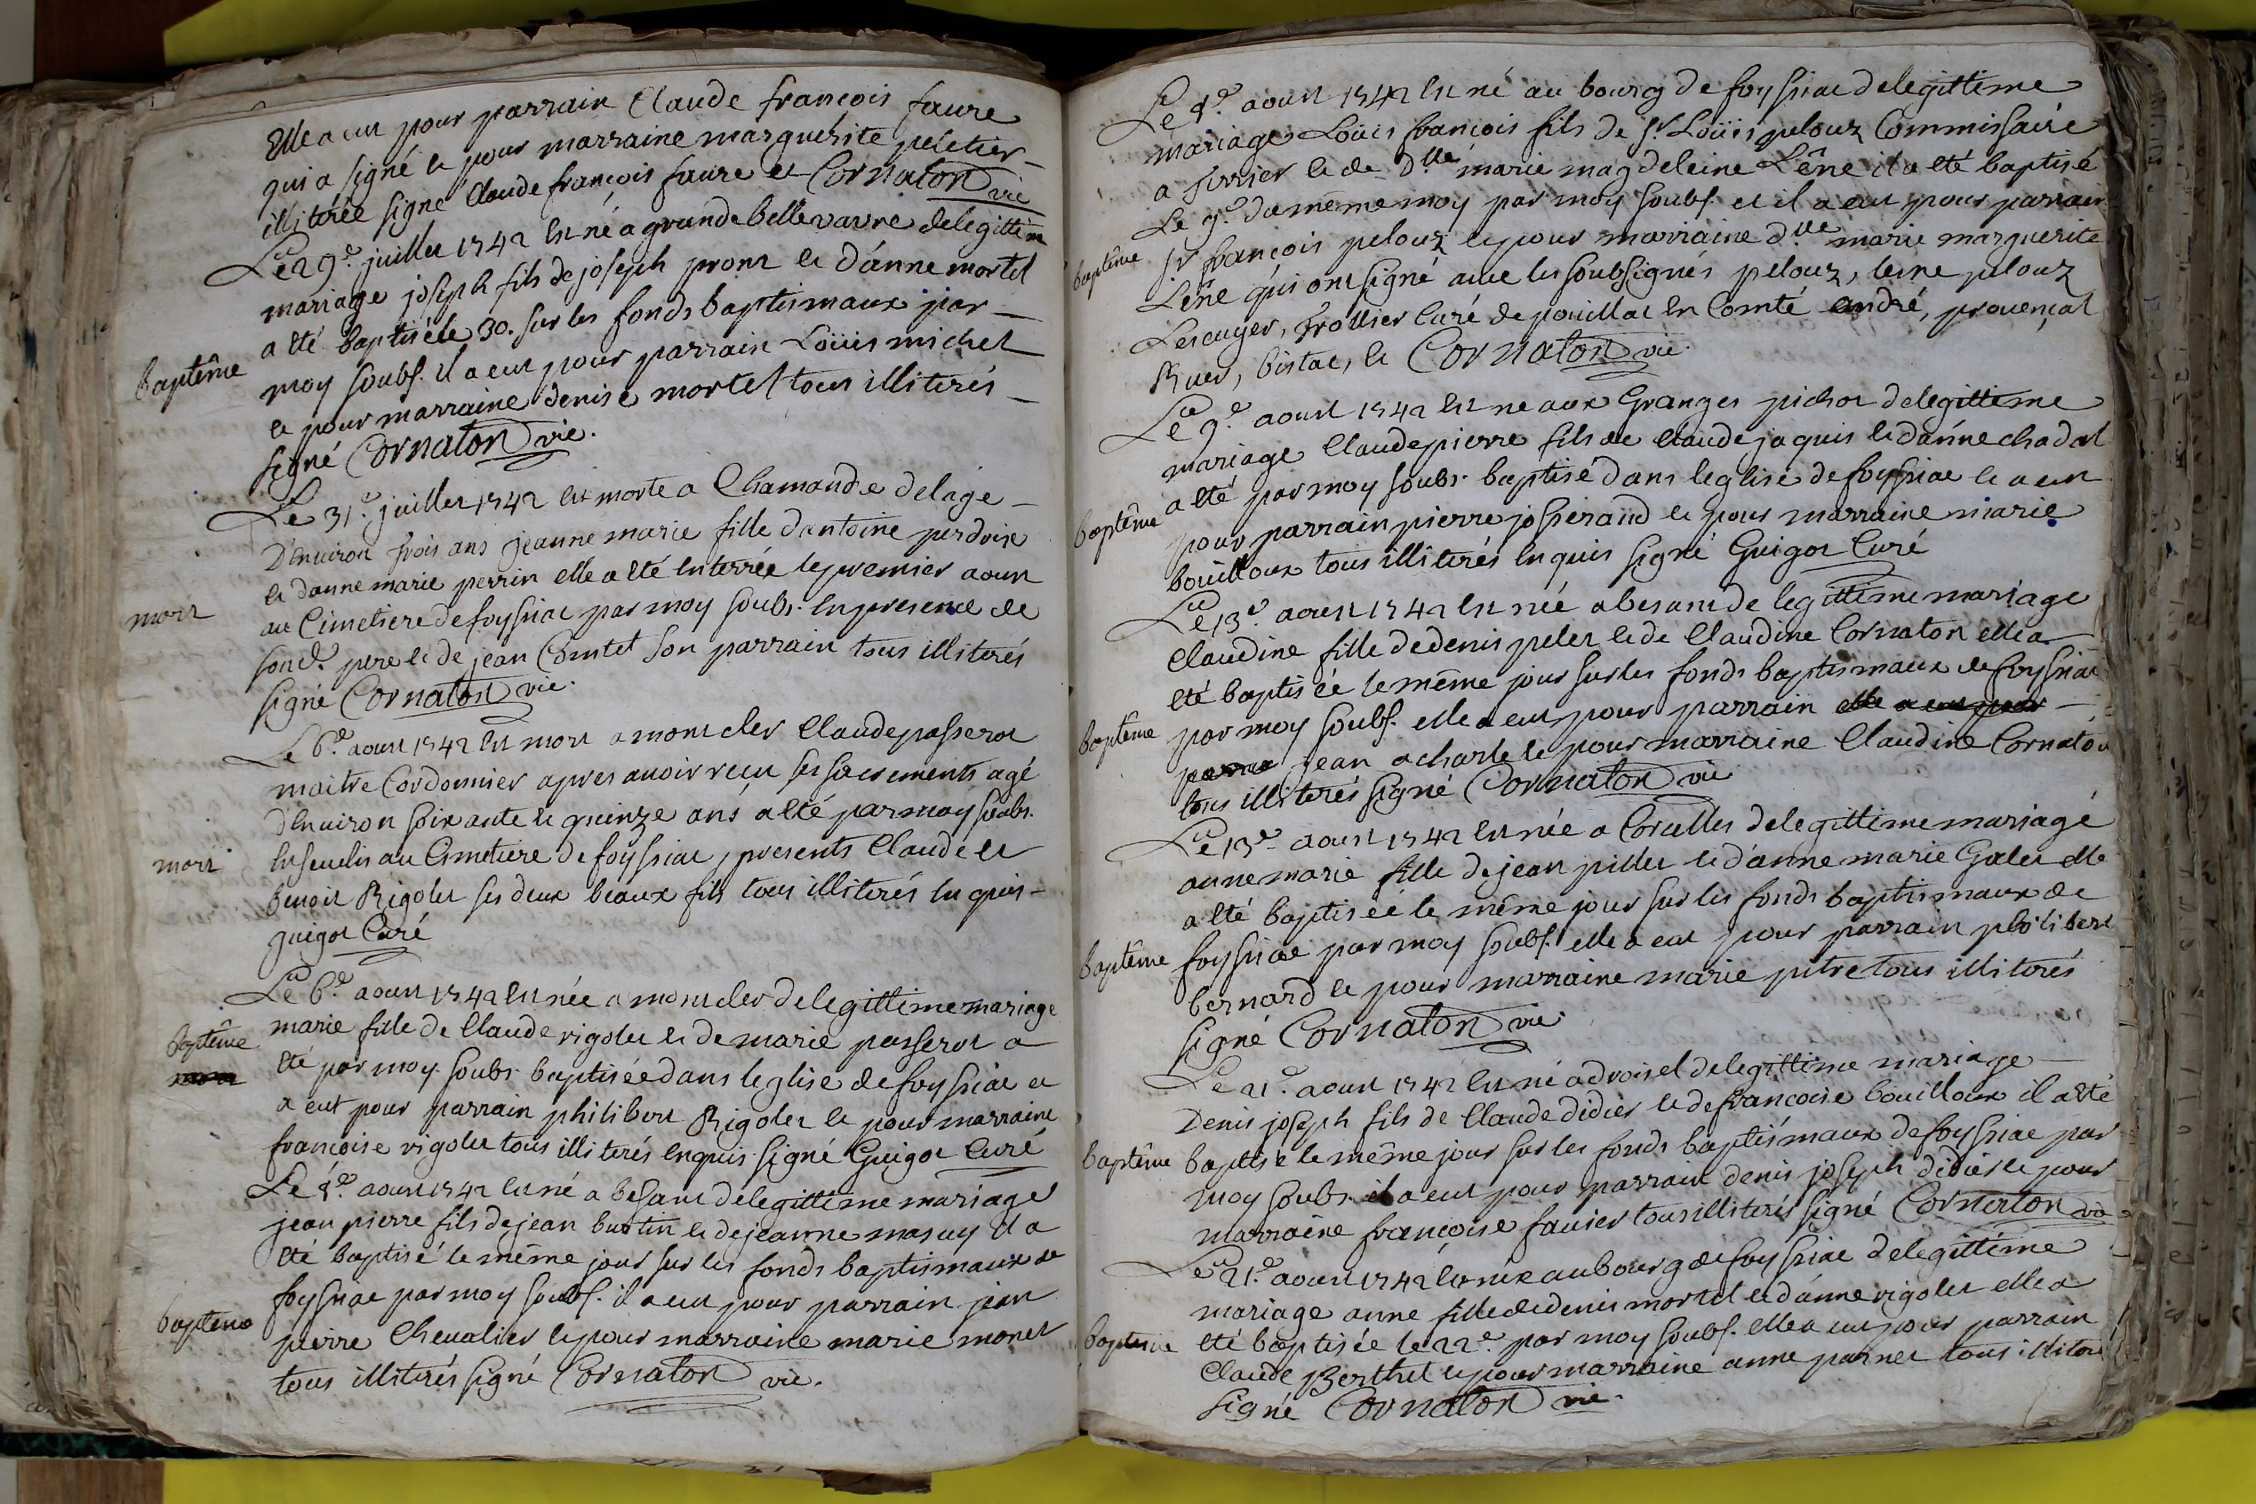 Elle a eu pour parrain Claude françois faure
qui a signé et pour marraine marguérite peletier
illitérée signé Claude françois faure et Cornaton vic
Le 29e juillet 1742 est né a grande bellevavre de legittime
mariage joseph fils de joseph pront et d'anne mortel
baptême
a été baptisé le 30. sur les fonds baptismaux par
moy soubs. il a eut pour parrain Loüis michel
et pour marraine denise mortel tous illiterés
signé Cornaton vic.
Le 31e juillet 1742 est morte a Chamande de l'age
D'environ trois ans jeanne marie fille d'antoine perdrix
et d'anne marie perrin elle a été enterrée le premier aoust
mort
au Cimetiere de foyssiac par moy soubs. en presence de
son d. pere et de jean Comtet son parrain tous illiterés
signé Cornaton vic.
Le 6e aoust 1742 est mort a montcler Claude passerot
maitre Cordonnier apres avoir reçu ses sacrements agé
d'environ soixante et quinze ans a été par moy soubs.
mort
enseveli au Cimetiere de foyssiac, presents Claude et
benoit Rigolet ses deux beaux fils tous illiterés enquis
guigot Curé
Le 6e aoust 1742 est née a montcler de legittime mariage
baptême
marie fille de Claude rigolet et de marie passerot a
été par moy soubs. baptisée dans leglise de foyssiac et
a eut pour parrain philibert Rigolet et pour marraine
françoise rigolet tous illiterés enquis signé Guigot Curé
Le 8e aoust 1742 est né a besant de legittime mariage
jean pierre fils de jean burtin et de jeanne masuy il a
été baptisé le même jour sur les fonds baptismaux de
foyssiac par moy soubs. il a eut pour parrain jean
baptême
pierre Chevalier et pour marraine marie monet
tous illiterés signé Cornaton vic.
Le 8e aoust 1742 est né au bourg de foyssiac de legittime
mariage Loüis françois fils de sr Loüis pelouz Commissaire
a terrier et de dlle marie magdeleine Lêne il a été baptisé
Le 9e du même moy par moy soubs. et il a eut pour parrain
baptême
sr françois pelouz et pour marraine dlle marie marguerite
Lêne qui ont signé avec les soubsignés pelouz, lene pelouz
Lescuyer, frollier Curé de pouillat en Comté andré, provençal
Ruer, bistac, et Cornaton vic.
Le 9e aoust 1742 est né aux Granges pichot de legittime
mariage Claude pierre fils de Claude jaquis et d'anne chadal
baptême
a été par moy soubs. baptisé dans leglise de foyssiac et a eut
pour parrain pierre josserand et pour marraine marie
bouilloux tous illiterés enquis signé Guigot Curé
Le 13e aoust 1742 est née a besant de legittime mariage
Claudine fille de denis pelet et de Claudine Cornaton elle a
été baptisée le même jour sur les fonds baptismaux de foyssiac
baptême
par moy soubs. elle a eut pour parrain elle a eut pour
parra jean acharle et pour marraine Claudine Cornaton
tous illiterés signé Cornaton vic
Le 13e aoust 1742 est née a Corcelles de legittime mariage
anne marie fille de jean pillet et d'anne marie Galet elle
a été baptisée le même jour sur les fonds baptismaux de
baptême
foyssiac par moy soubs. elle a eut pour parrain philibert
bernard et pour marraine marie pitre tous illiterés
signé Cornaton vic.
Le 21e aoust 1742 est né a droisel de legittime mariage
Denis joseph fils de Claude didier et de françoise bouilloux il a été
baptême
baptisé le même jour sur les fonds baptismaux de foyssiac par
moy soubs. il a eut pour parrain denis joseph didier et pour
marraine françoise favier tous illiterés signé Cornaton vic
Le 21e aoust 1742 est née au bourg de foyssiac de legittime
mariage anne fille de denis mortel et d'anne rigolet elle a
baptême
été baptisée le 22e par moy soubs. elle a eut pour parrain
Claude Berthet et pour marraine anne parnet tous illiteré
signé Cornaton vic.